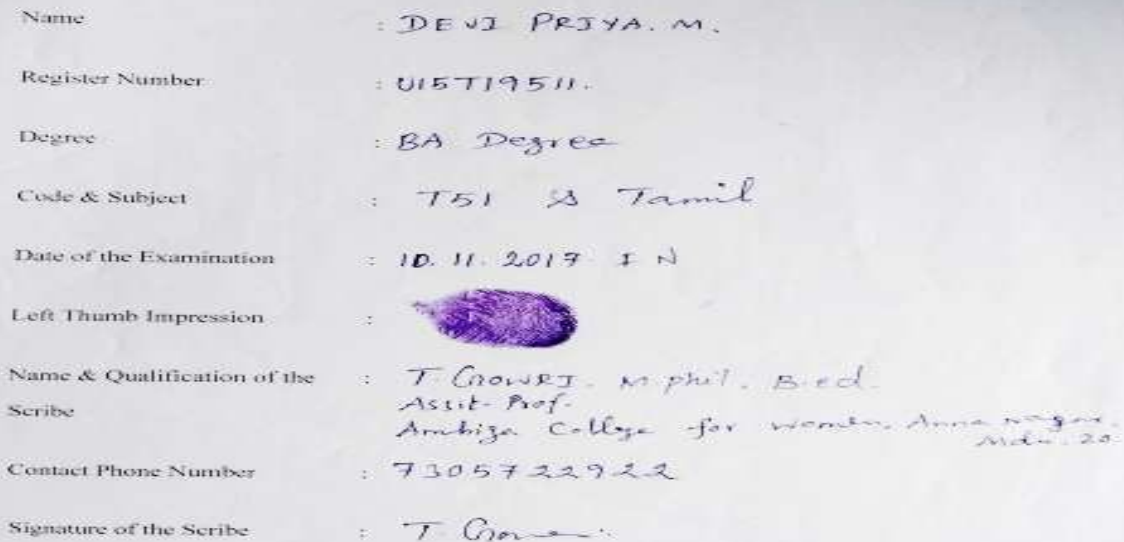 Name : DEVI PRIYA. M.
Register Number : U15T19511.
Degree : BA Degree
Code & Subject : T51 & Tamil
Date of the Examination : 10. 11. 2017 I N
Left Thumb Impression :
Name & Qualification of the : T. Gowri. M phil. B.ed.
Scribe Assit. Prof.
Ambiga College for women, Anna nagar.
Mdu. 20
Contact Phone Number : 7305722922
Signature of the Scribe : T.